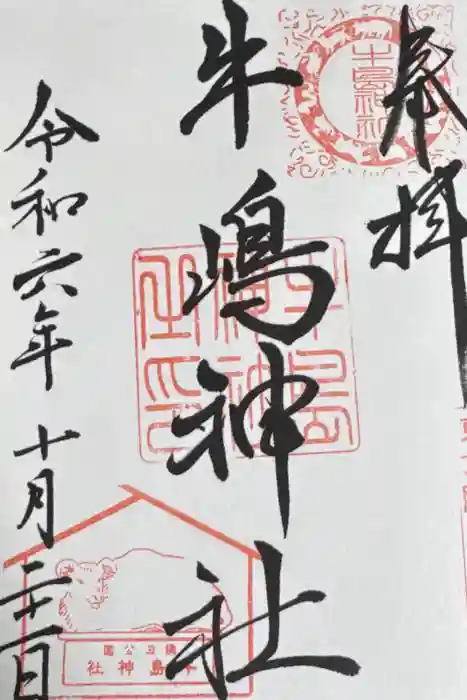 奉拝
牛嶋神社
令和六年十月二十一日
牛島神社